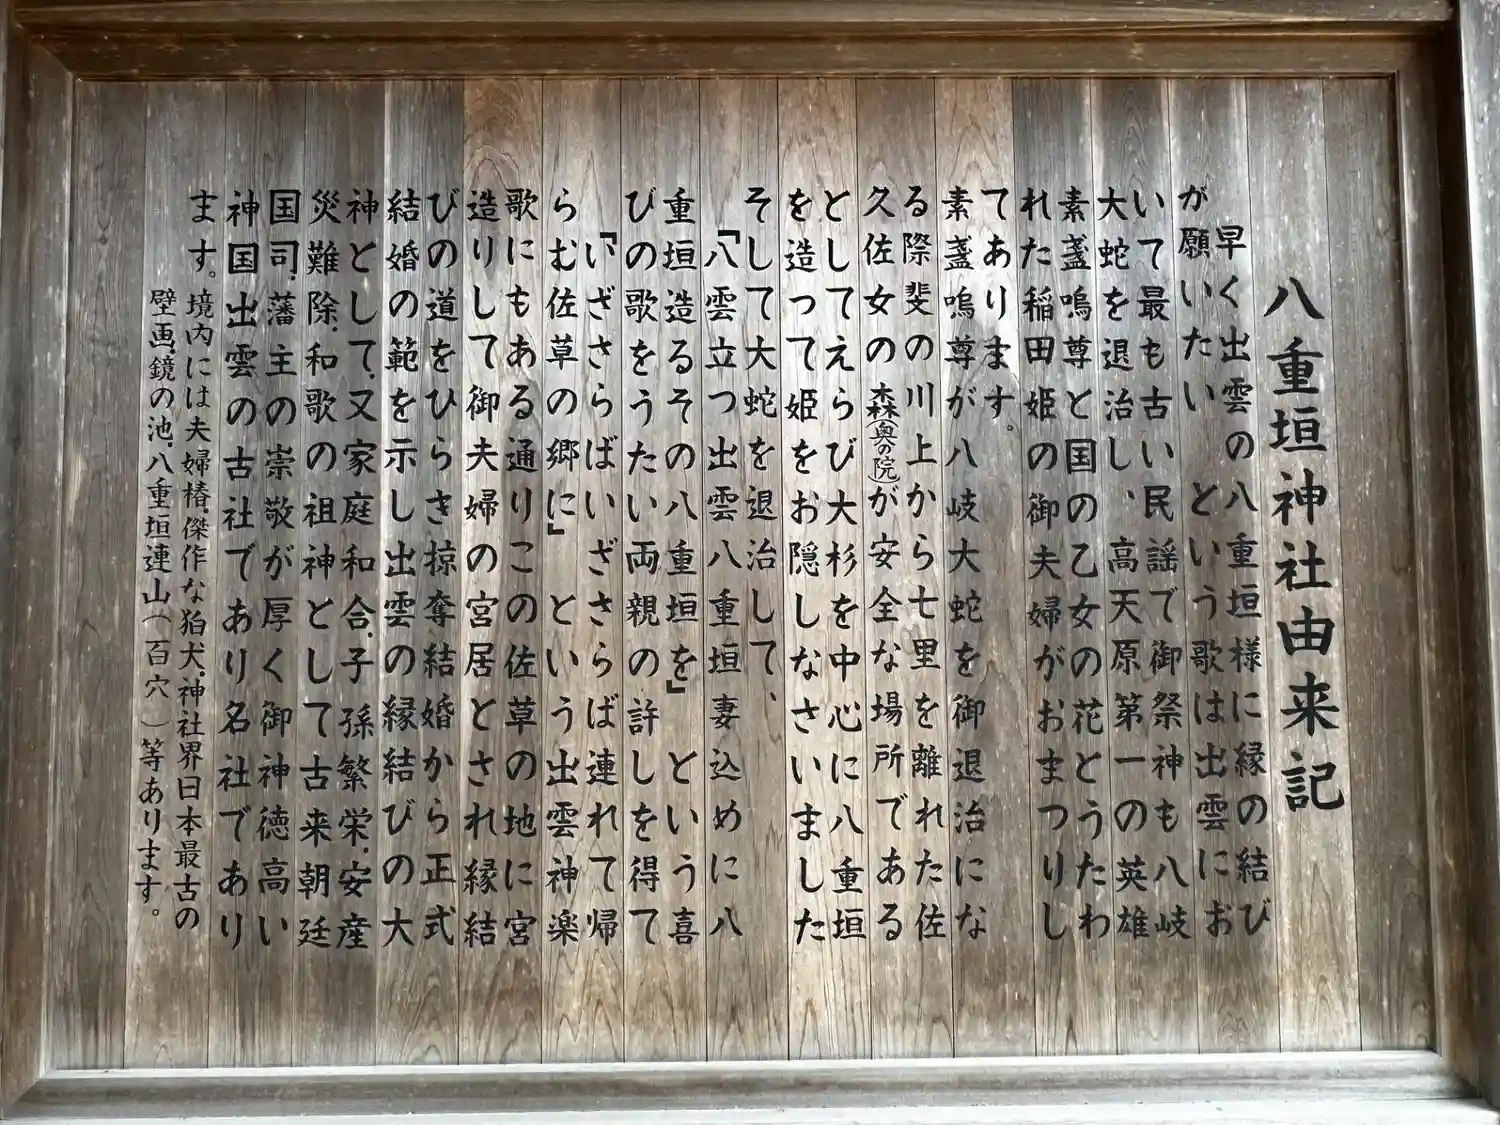 八重垣神社由来記
早く出雲の八重垣様に縁の結び
が願いたい という歌は出雲にお
いて最も古い民謡で御祭神も八岐
大蛇を退治し、高天原第一の英雄
素盞嗚尊と国の乙女の花とうたわ
れた稲田姫の御夫婦がおまつりし
てあります。
素盞嗚尊が八岐大蛇を御退治にな
る際斐の川上から七里を離れた佐
久佐女の森(奥の院)が安全な場所である
としてえらび大杉を中心に八重垣
を造って姫をお隠しなさいました
そして大蛇を退治して、
「八雲立つ出雲八重垣妻込めに八
重垣造るその八重垣を」 という喜
びの歌をうたい両親の許しを得て
「いざさらばいざさらば連れて帰
らむ佐草の郷に」 という出雲神楽
歌にもある通りこの佐草の地に宮
造りして御夫婦の宮居とされ縁結
びの道をひらき掠奪結婚から正式
結婚の範を示し出雲の縁結びの大
神として、又家庭和合、子孫繁栄、安産
災難除、和歌の祖神として古来朝廷
国司、藩主の崇敬が厚く御神徳高い
神国出雲の古社であり名社であり
ます。境内には夫婦椿、傑作な狛犬、神社界日本最古の
壁画、鏡の池、八重垣連山(百穴)等あります。